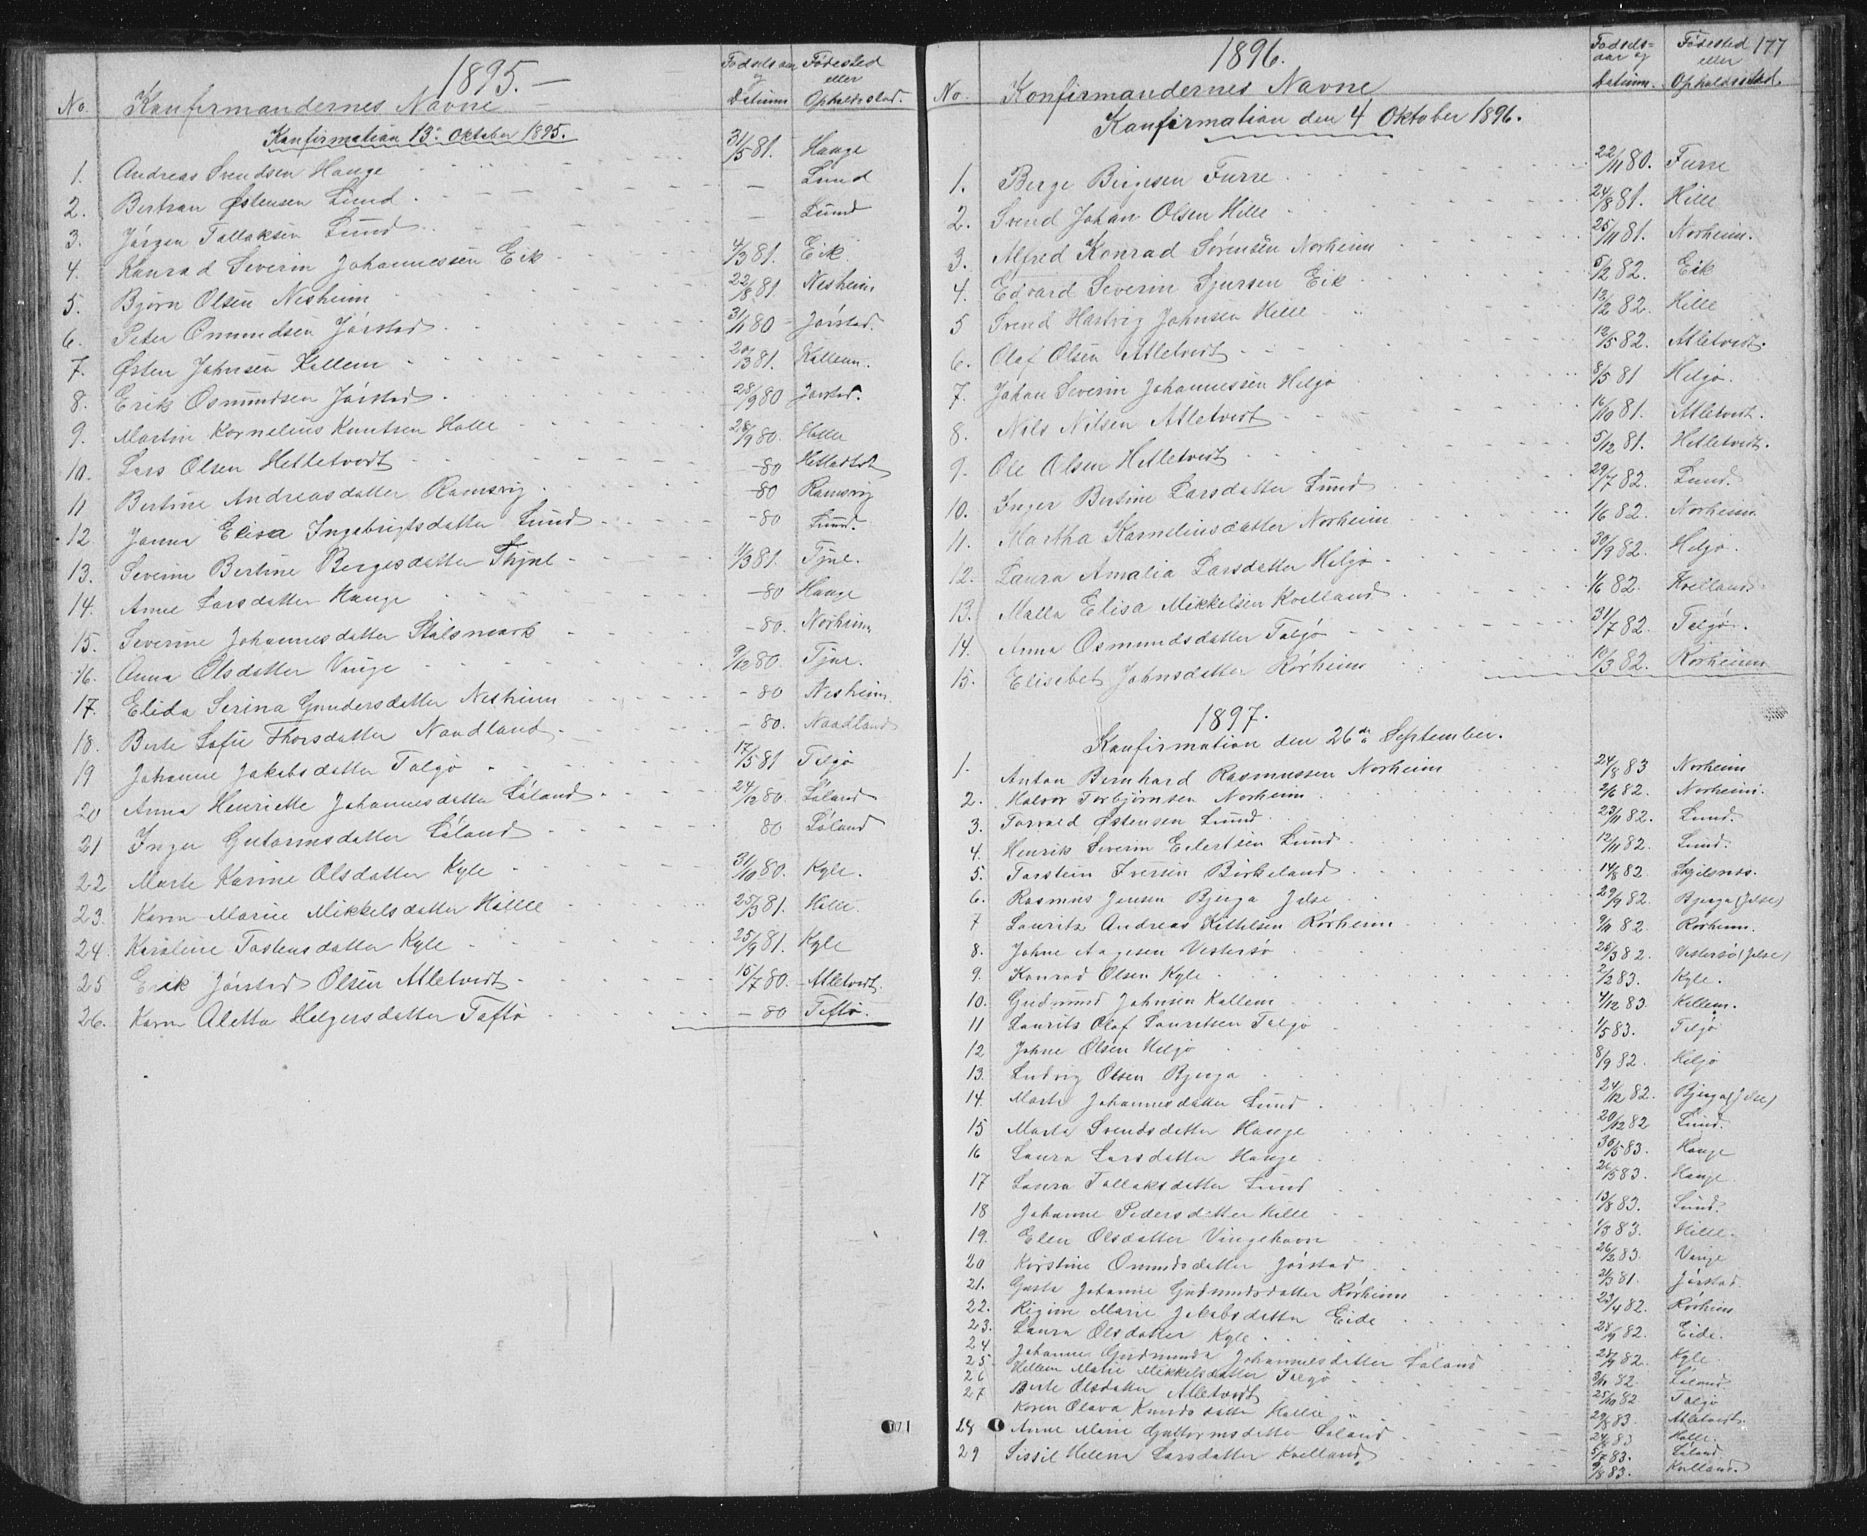 1895.
No. Konfirmandernes Navne Fødselsaar og Datum Fødested eller Opholdsted.
Konfirmation 13de Oktober 1895.
1. Andreas Svendsen Hauge 31/5 81. Hauge
2. Bertran Østensen Lund — Lund
3. Jørgen Tollaksen Lund — Lund
4. Konrad Severin Johannessen Eik 4/3 81. Eik
5. Bjørn Olsen Nesheim 22/8 81 Nesheim
6. Peter Omundsen Jørstad 31/11 80 Jørstad.
7. Østen Johnsen Kallem 20/3 81. Kallem.
8. Erik Osmundsen Jørstad 28/9 80 Jørstad.
9. Martin Kornelius Knutsen Halle 28/9 80. Halle
10. Lars Olsen Hetletvedt —80
11 Bertine Andreasdatter Ramsvig —80 Ramsvig
12. Janna Elisa Ingebrigtsdatter Lund —80 Lund.
13. Severine Bertine Bergesdatter 1/3 81. Tjne.
14. Anne Larsdatter Hauge —80 Hauge
15. Severine Johannesdatter —80. Norheim
16. Anna Olsdatter Vinge 9/12 80. Tjne.
17. Elida Serina Gundersdatter Nesheim —80 Nesheim
18. Berte Sofie Thorsdatter Naadland —80. Naadland
19 Johanne Jakobsdatter Talgø 17/5 81 Talgø
20 Anna Henriette Johannesdatter Løland 24/12 80. Løland
21 Inger Gutormsdatter Løland 80 Løland
22 Marte Karine Olsdatter Kyle 31/10 80. Kyle.
23. Karen Marie Mikkelsdatter Halle 25/3 81. Halle.
24. Karoline Tostensdatter Kyle 25/9 81. Kyle
25 Erik Jørstad Olsen Atletvedt 15/7 80. Atletvedt.
26. Karen Aletta Helgersdatter Toftø —80 Toftø.
1896. 177
No. Konfirmandernes Navne Fødselsaar og Datum. Fødested eller Opholdssted.
Konfirmation den 4 Oktober 1896.
1. Berge Birgesen Furre 22/11 80. Furre
2. Svend Johan Olsen Hille 24/8 81. Hille
3. Alfred Konrad Sørensen Norheim 25/11 81. Norheim.
4. Edvard Severin Sjursen Eik 5/12 82. Eik
5 Svend Hartvig Johnsen Hille 12/2 82. Hille
6. Olaf Olsen Atletvedt 12/5 82. Atletvedt.
7. Johan Severin Johannessen Helgø 8/5 81 Helgø.
8. Nils Nilsen Atletvedt 16/10 81. Atletvedt.
9. Ole Olsen Hetletvedt 5/12 81. Hetletvedt.
10. Inger Bertine Larsdatter Lund 29/7 82. Lund.
11. Martha Korneliusdatter Norheim 1/6 82. Norheim
12. Laura Amalia Larsdatter Helgø 30/9 82. Helgø.
13. Malla Elisa Mikkelsen Kvelland 1/6 82. Kvelland
14. Anna Osmundsdatter Talgø 31/7 82. Talgø.
15. Elisabet Johnsdatter Rørheim 10/3 82. Rørheim
1897.
Konfirmation den 26de September.
1. Anton Bernhard Rasmussen Norheim 24/8 83 Norheim
2. Halvor Torbjørnsen Norheim 2/6 82. Norheim.
3. Torvald Østensen Lund 23/11 82. Lund.
4. Henrik Severin Eilertsen Lund 12/11 82. Lund.
5. Torstein Iversen Birkeland 14/8 82.
6. Rasmus Jensen Bjerga Jelse 29/9 82. Bjerga (Jelse)
7 Laurits Andreas Kittelsen Rørheim 9/11 82. Rørheim.
8. Johne Aagesen Vestersø 26/3 82. Vestersø (Jelse)
9. Konrad Olsen Kyle 2/2 83. Kyle.
10. Gudmund Johnsen Kallem 4/12 83. Kallem.
11 Laurits Olaf Lauritsen Talgø 1/5 83. Talgø
12 Johne Olsen Helgø 8/9 82. Helgø
13. Ludvig Olsen Bjerga 24/12 82. Bjerga (Jelse)
14. Marta Johannesdatter Lund 20/12 82 Lund.
15 Marta Svendsdatter Hauge 30/5 83. Hauge
16 Laura Larsdatter Hauge 83. Hauge.
17 Laura Tollaksdatter Lund 13/8 83. Lund.
18 Johanne Pedersdatter Halle 1/3 83. Halle.
19. Elen Olsdatter Vingehavn 26/2 83. Vinge
20 Kirstine Omundsdatter Jørstad 81. Jørstad
21. Gusta Johanne Gudmundsdatter Rørheim 23/4 82. Rørheim
22. Regine Marie Jakobsdatter Eide 82. Eide.
23. Laura Olsdatter Kyle 82. Kyle
24 Johanne Gudmunda Johannesdatter Løland 82 Løland
25 Helene Marie Mikkelsdatter Talgø 25/10 82 Talgø
26 Berte Olsdatter Atletvedt 29/8 83. Atletvedt.
27 Karen Olava Knudsdatter Halle 83 Halle.
28 Anne Marie Guttormsdatter Løland 5/7 83. Løland
29 Sissil Helena Larsdatter Kvelland 9/8 83. Kvelland.